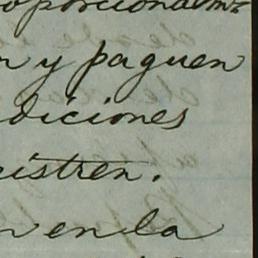 oporcionalmte
n y paguen
diciones
istren.
en la